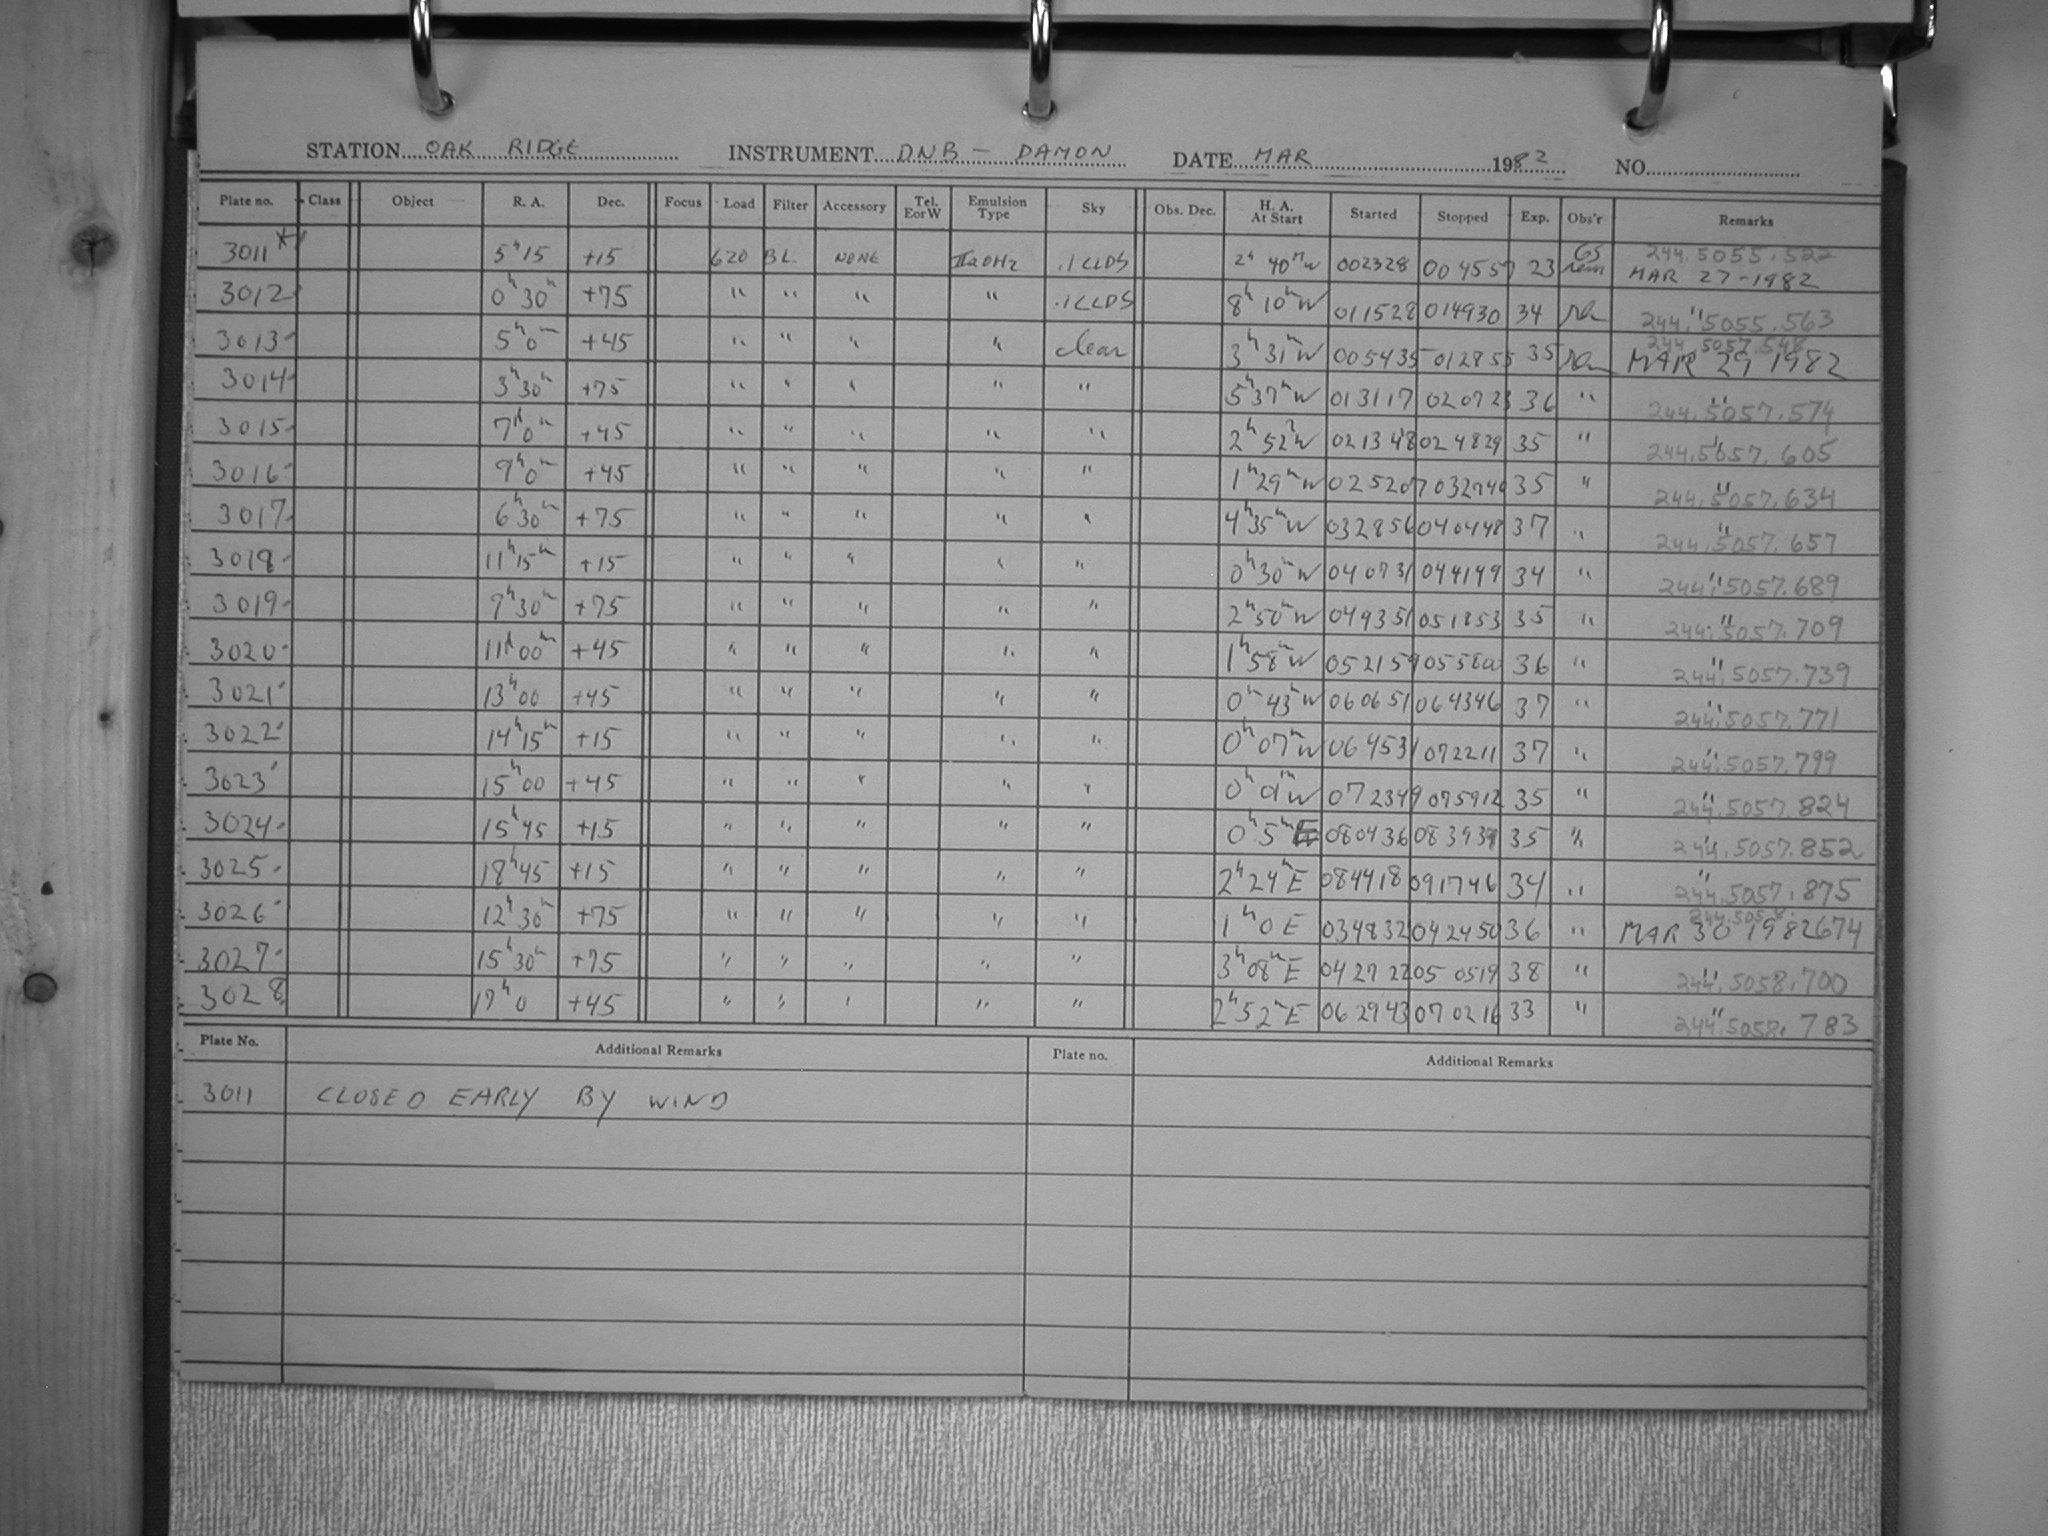 STATION OAK RIDGE INSTRUMENT DNB - DAMON DATE MAR 1982 NO.
Plate no. Class Object R. A. Dec. Focus Load Filter Accessory Tel. E or W Emulsion Type Sky Obs. Dec. H. A. At Start Started Stopped Exp. Obs'r Remarks
3011 5h15 +15 620 BL. NONE IIaOH2 .1 CLDS 2h 40m W 002328 004557 23 GS 244.5055.522 MAR 27-1982
3012 0h30m +75 " " " " .1 CLDS 8h 10m W 011528 014930 34 " 244.5055.563
3013 5h0m +45 " " " " clear 3h 31m W 005435 012855 35 244.5057.548 MAR 29 1982
3014 3h30m +75 " " " " " 5h37m W 013117 020723 36 " " 244.5057.574
3015 7h0m +45 " " " " " 2h 52m W 021348 024829 35 " " 244.5057.605
3016 9h0m +45 " " " " " 1h29m W 025207 032740 35 " " 244.5057.634
3017 6h30m +75 " " " " " 4h35m W 032856 040448 37 " " 244.5057.657
3018 11h15m +15 " " " " " 0h30m W 040731 044149 34 " " 244.5057.689
3019 9h30m +75 " " " " " 2h50m W 051853 35 " " 244.5057.709
3020 11h00m +45 " " " " " 1h58m W 052159 36 " " 244.5057.739
3021 13h00 +45 " " " " " 0h43m W 060651 064346 37 " " 244.5057.771
3022 14h15m +15 " " " " " 0h07m W 064531 072211 37 " " 244.5057.799
3023 15h00 +45 " " " " " 072349 075912 35 " " 244.5057.824
3024 15h45 +15 " " " " " 0h5m E 080436 083939 35 " " 244.5057.852
3025 18h45 +15 " " " " " 2h24m E 084418 091746 34 " " 244.5057.875
3026 12h30m +75 " " " " " 1h0 E 034832 042450 36 " MAR 30 1982 674
3027 15h30m +75 " " " " " 3h08m E 042722 050519 38 " " 244.5058.700
3028 17h0 +45 " " " " " 2h52m E 062943 070216 33 " " 244.5058.783
Plate No. Additional Remarks Plate no. Additional Remarks
3011 CLOSED EARLY BY WIND